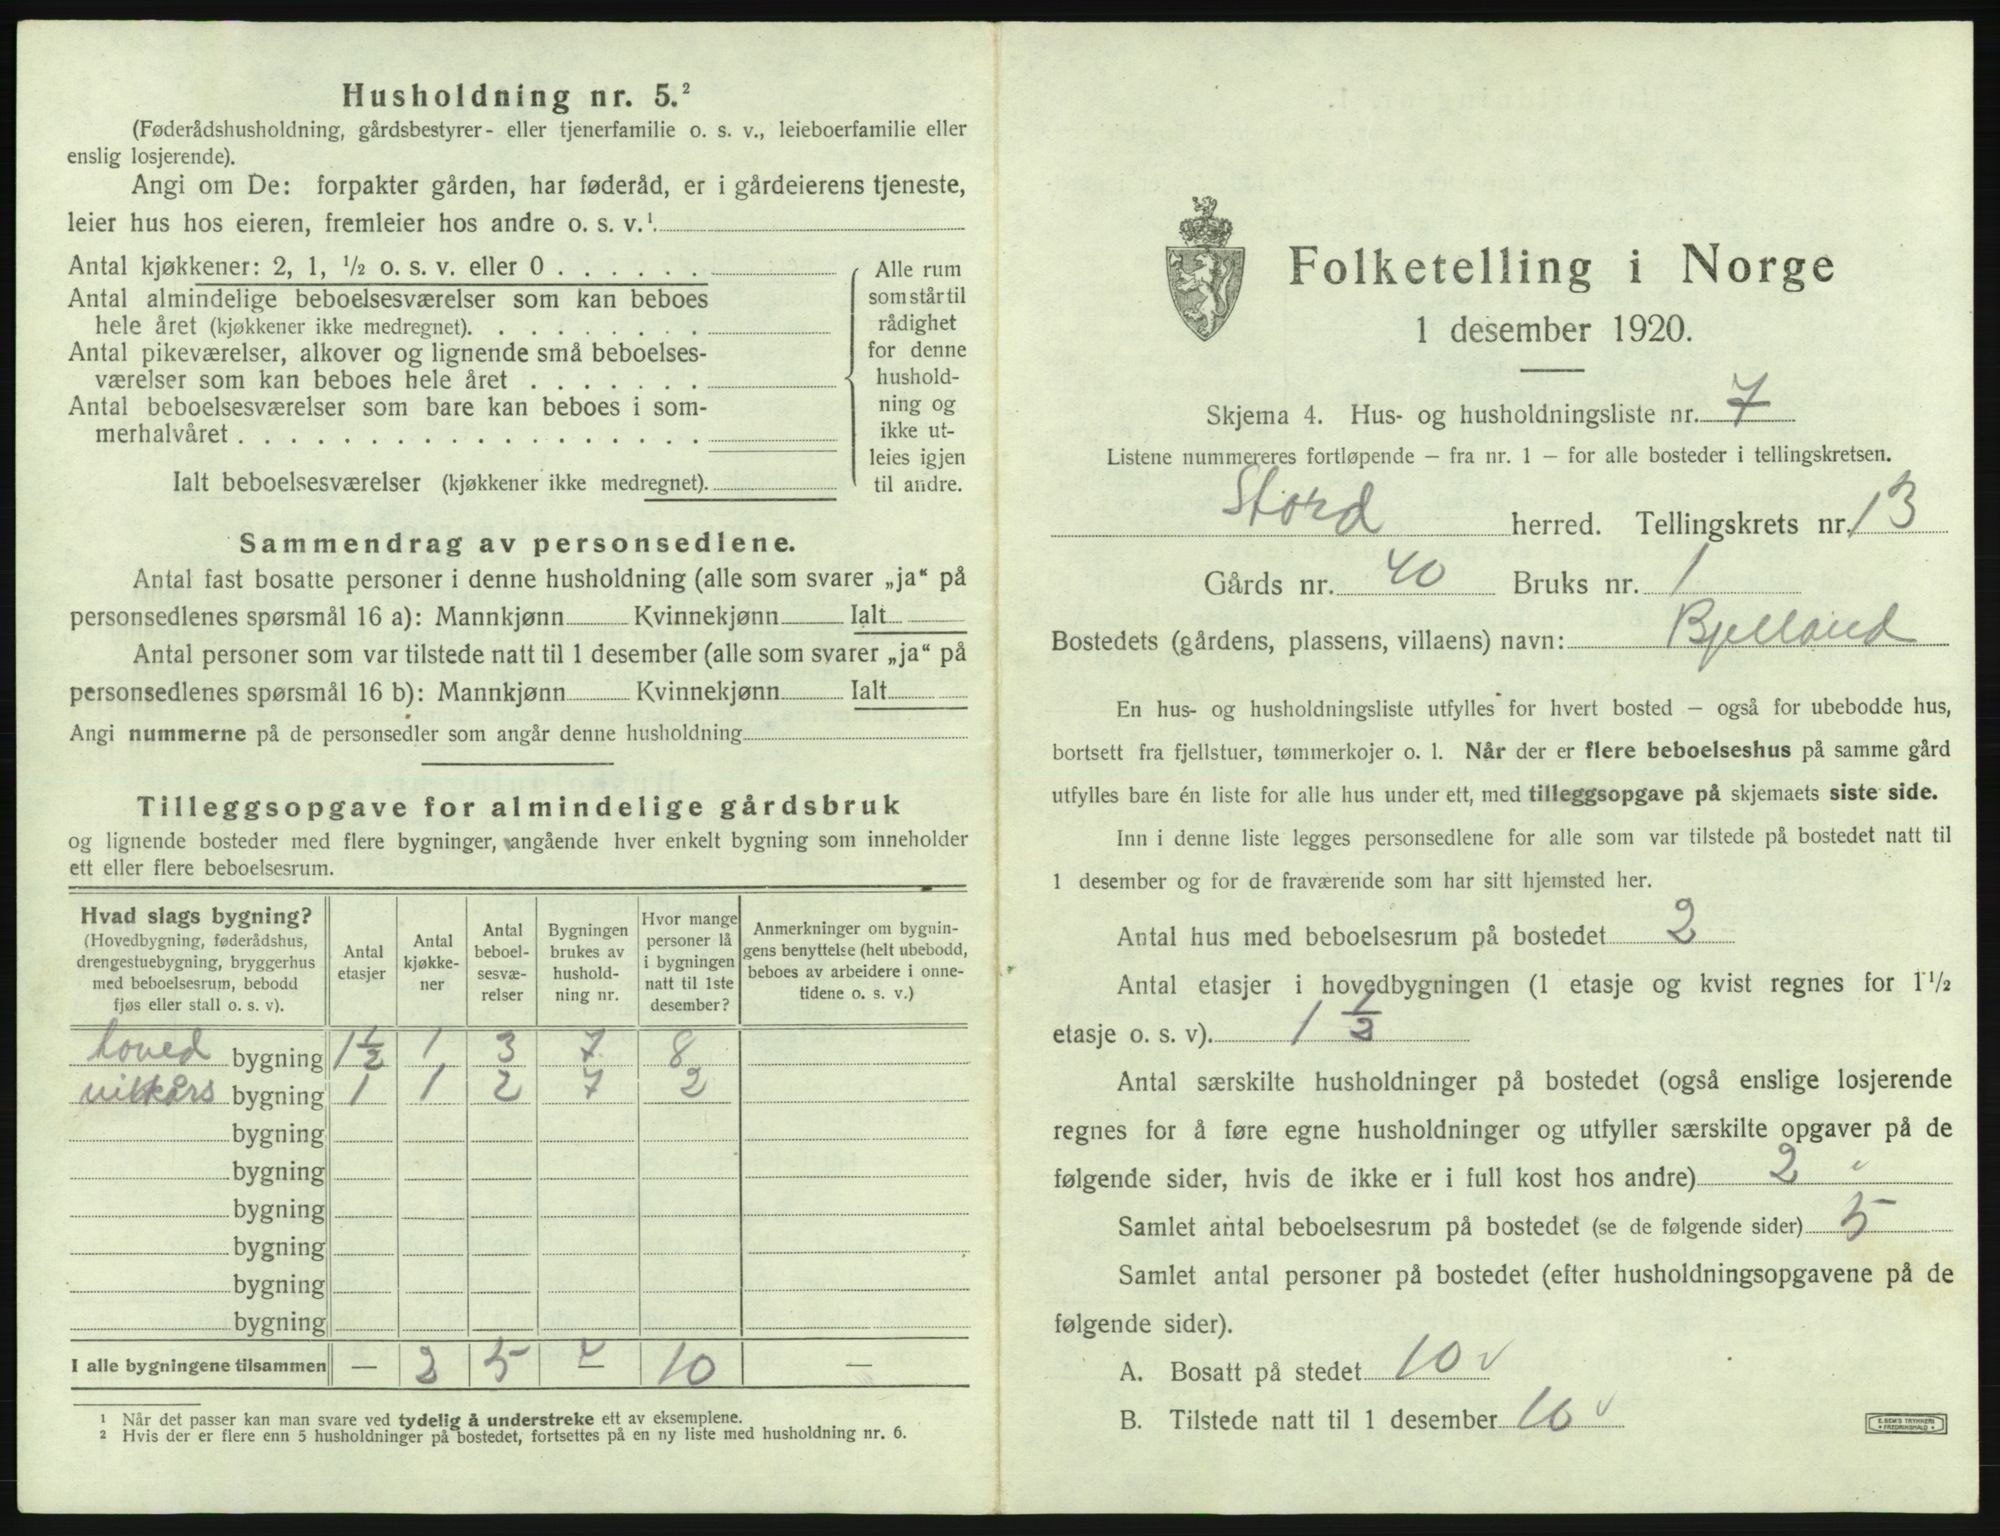 Husholdning nr. 5.²
(Føderådshusholdning, gårdsbestyrer- eller tjenerfamilie o. s. v., leieboerfamilie eller
enslig losjerende).
Angi om De: forpakter gården, har føderåd, er i gårdeierens tjeneste,
leier hus hos eieren, fremleier hos andre o. s. v.¹
Antal kjøkkener: 2, 1, ½ o. s. v. eller 0 . . . . . .
Antal almindelige beboelsesværelser som kan beboes
hele året (kjøkkener ikke medregnet). . . . . . . . .
Antal pikeværelser, alkover og lignende små beboelses-
værelser som kan beboes hele året . . . . . . .
Antal beboelsesværelser som bare kan beboes i som-
merhalvåret . . . . . . . . . . . . . . . . . .
Ialt beboelsesværelser (kjøkkener ikke medregnet).
Alle rum
som står til
rådighet
for denne
hushold-
ning og
ikke ut-
leies igjen
til andre.
Sammendrag av personsedlene.
Antal fast bosatte personer i denne husholdning (alle som svarer „ja“ på
personsedlenes spørsmål 16 a): Mannkjønn Kvinnekjønn Ialt
Antal personer som var tilstede natt til 1 desember (alle som svarer „ja“ på
personsedlenes spørsmål 16 b): Mannkjønn Kvinnekjønn Ialt
Angi nummerne på de personsedler som angår denne husholdning
Tilleggsopgave for almindelige gårdsbruk
og lignende bosteder med flere bygninger, angående hver enkelt bygning som inneholder
ett eller flere beboelsesrum.
Hvad slags bygning?
(Hovedbygning, føderådshus,
drengestuebygning, bryggerhus
med beboelsesrum, bebodd
fjøs eller stall o. s. v).
Antal
etasjer
Antal
kjøkke-
ner
Antal
beboel-
sesvæ-
relser
Bygningen
brukes av
hushold-
ning nr.
Hvor mange
personer lå
i bygningen
natt til 1ste
desember?
Anmerkninger om bygnin-
gens benyttelse (helt ubebodd,
beboes av arbeidere i onne-
tidene o. s. v.)
hoved bygning 1½ 1 3 7 8
vilkårs bygning 1 1 2 7 2
bygning
bygning
bygning
bygning
bygning
bygning
I alle bygningene tilsammen — 2 5 — 10 —
¹ Når det passer kan man svare ved tydelig å understreke ett av eksemplene.
² Hvis der er flere enn 5 husholdninger på bostedet, fortsettes på en ny liste med husholdning nr. 6.
Folketelling i Norge
1 desember 1920.
Skjema 4. Hus- og husholdningsliste nr. 7
Listene nummereres fortløpende – fra nr. 1 – for alle bosteder i tellingskretsen.
Stord herred. Tellingskrets nr. 13
Gårds nr. 40 Bruks nr. 1
Bostedets (gårdens, plassens, villaens) navn: Bjelland
En hus- og husholdningsliste utfylles for hvert bosted – også for ubebodde hus,
bortsett fra fjellstuer, tømmerkojer o. l. Når der er flere beboelseshus på samme gård
utfylles bare én liste for alle hus under ett, med tilleggsopgave på skjemaets siste side.
Inn i denne liste legges personsedlene for alle som var tilstede på bostedet natt til
1 desember og for de fraværende som har sitt hjemsted her.
Antal hus med beboelsesrum på bostedet 2
Antal etasjer i hovedbygningen (1 etasje og kvist regnes for 1½
etasje o. s. v). 1½
Antal særskilte husholdninger på bostedet (også enslige losjerende
regnes for å føre egne husholdninger og utfyller særskilte opgaver på de
følgende sider, hvis de ikke er i full kost hos andre) 2
Samlet antal beboelsesrum på bostedet (se de følgende sider) 5
Samlet antal personer på bostedet (efter husholdningsopgavene på de
følgende sider).
A. Bosatt på stedet 10 v
B. Tilstede natt til 1 desember 10 v
E. SEM'S TRYKKERI
FREDRIKSHALD